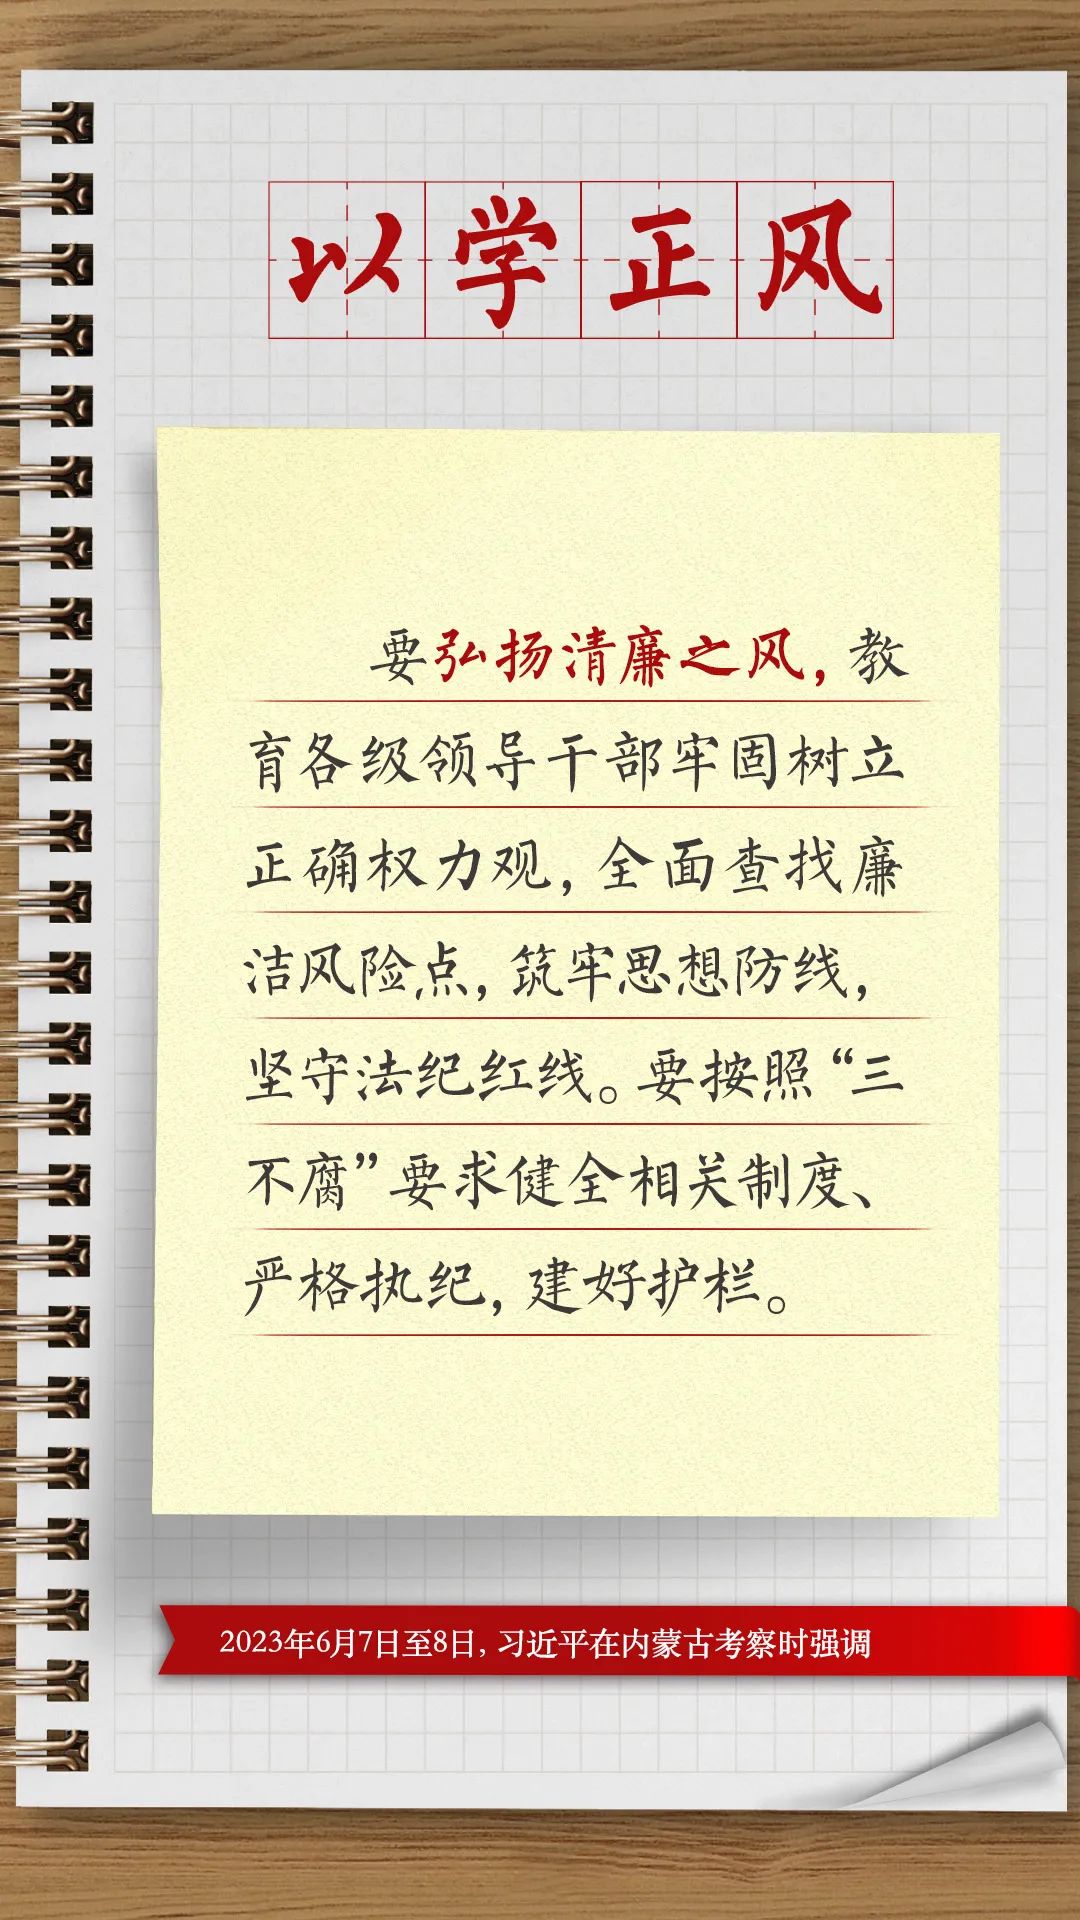 以学正风
要弘扬清廉之风，教
育各级领导干部牢固树立
正确权力观，全面查找廉
洁风险点，筑牢思想防线，
坚守法纪红线。要按照“三
不腐”要求健全相关制度、
严格执纪，建好护栏。
2023年6月7日至8日，习近平在内蒙古考察时强调